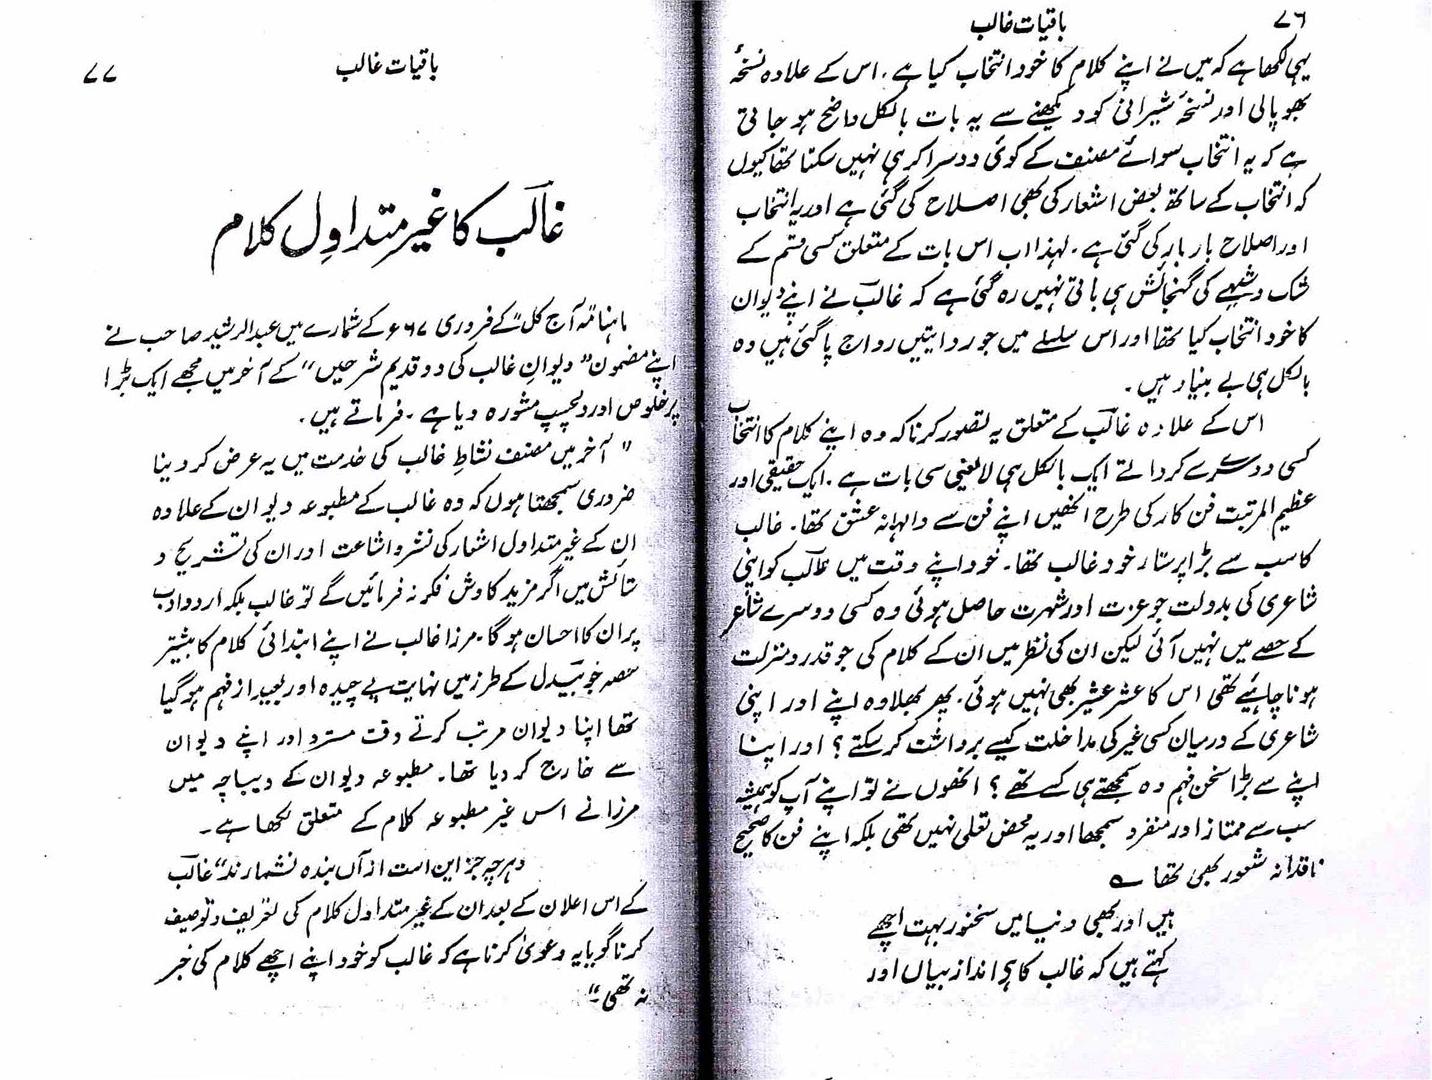 ۷۶
باقیات غالب
یہی لکھا ہے کہ میں نے اپنے کلام کا خود انتخاب کیا ہے، اس کے علاوہ نسخۂ
بھوپالی اور نسخۂ شیرانی کو دیکھنے سے یہ بات بالکل واضح ہو جاتی
ہے کہ یہ انتخاب سوائے مصنف کے کوئی دوسرا کر ہی نہیں سکتا تھا کیوں
کہ انتخاب کے ساتھ بعض اشعار کی بھی اصلاح کی گئی ہے اور یہ انتخاب
اور اصلاح بار بار کی گئی ہے۔ لہذا اب اس بات کے متعلق کسی قسم کے
شک و شبہے کی گنجائش ہی باقی نہیں رہ گئی ہے کہ غالبؔ نے اپنے دیوان
کا خود انتخاب کیا تھا اور اس سلسلے میں جو روایتیں رواج پا گئی ہیں وہ
بالکل ہی بے بنیاد ہیں۔
اس کے علاوہ غالبؔ کے متعلق یہ تصور کرنا کہ وہ اپنے کلام کا انتخاب
کسی دوسرے کرداتے ایک بالکل ہی لایعنی سی بات ہے۔ ایک حقیقی اور
عظیم المرتبت فن کار کی طرح انھیں اپنے فن سے والہانہ عشق تھا۔ غالب
کا سب سے بڑا پرستار خود غالب تھا۔ خود اپنے وقت میں غالبؔ کو اپنی
شاعری کی بدولت جو عزت اور شہرت حاصل ہوئی وہ کسی دوسرے شاعر
کے حصے میں نہیں آئی لیکن ان کی نظر میں ان کے کلام کی جو قدر و منزلت
ہونا چاہیئے تھی اس کا عشر عشیر بھی نہیں ہوئی۔ پھر بھلا وہ اپنے اور اپنی
شاعری کے درمیان کسی غیر کی مداخلت کیسے برداشت کر سکتے؟ اور اپنا
اپنے سے بڑا سخن فہم وہ سمجھتے ہی کسے تھے؟ انھوں نے تو اپنے آپ کو ہمیشہ
سب سے ممتاز اور منفرد سمجھا اور یہ محض تعلی نہیں تھی بلکہ اپنے فن کا صحیح
ناقدانہ شعور بھی تھا ؎
ہیں اور بھی دنیا میں سخنور بہت اچھے
کہتے ہیں کہ غالب کا ہے انداز بیاں اور
باقیات غالب
۷۷
غالبؔ کا غیر متداول کلام
ماہنامہ "آج کل" کے فروری ۶۷ء کے شمارے میں عبدالرشید صاحب نے
اپنے مضمون "دیوانِ غالب کی دو قدیم شرحیں" کے آخر میں مجھے ایک بڑا
پرخلوص اور دلچسپ مشورہ دیا ہے۔ فرماتے ہیں۔
"آخر میں مصنف نشاطِ غالب کی خدمت میں یہ عرض کر دینا
ضروری سمجھتا ہوں کہ وہ غالب کے مطبوعہ دیوان کے علاوہ
ان کے غیر متداول اشعار کی نشر و اشاعت اور ان کی تشریح و
ستائش میں اگر مزید کاوش فکر نہ فرمائیں گے تو غالب بلکہ اردو ادب
پر ان کا احسان ہو گا۔ مرزا غالب نے اپنے ابتدائی کلام کا بیشتر
حصہ جو بیدؔل کے طرز میں نہایت پے چیدہ اور بعید از فہم ہو گیا
تھا اپنا دیوان مرتب کرتے وقت مسترد اور اپنے دیوان
سے خارج کر دیا تھا۔ مطبوعہ دیوان کے دیباچہ میں
مرزا نے اس غیر مطبوعہ کلام کے متعلق لکھا ہے۔
دہرچہ جز این است از آں بندہ نشمارند" غالبؔ
کے اس اعلان کے بعد ان کے غیر متداول کلام کی تعریف و توصیف
کرنا گویا یہ دعویٰ کرنا ہے کہ غالب کو خود اپنے اچھے کلام کی خبر
نہ تھی۔"